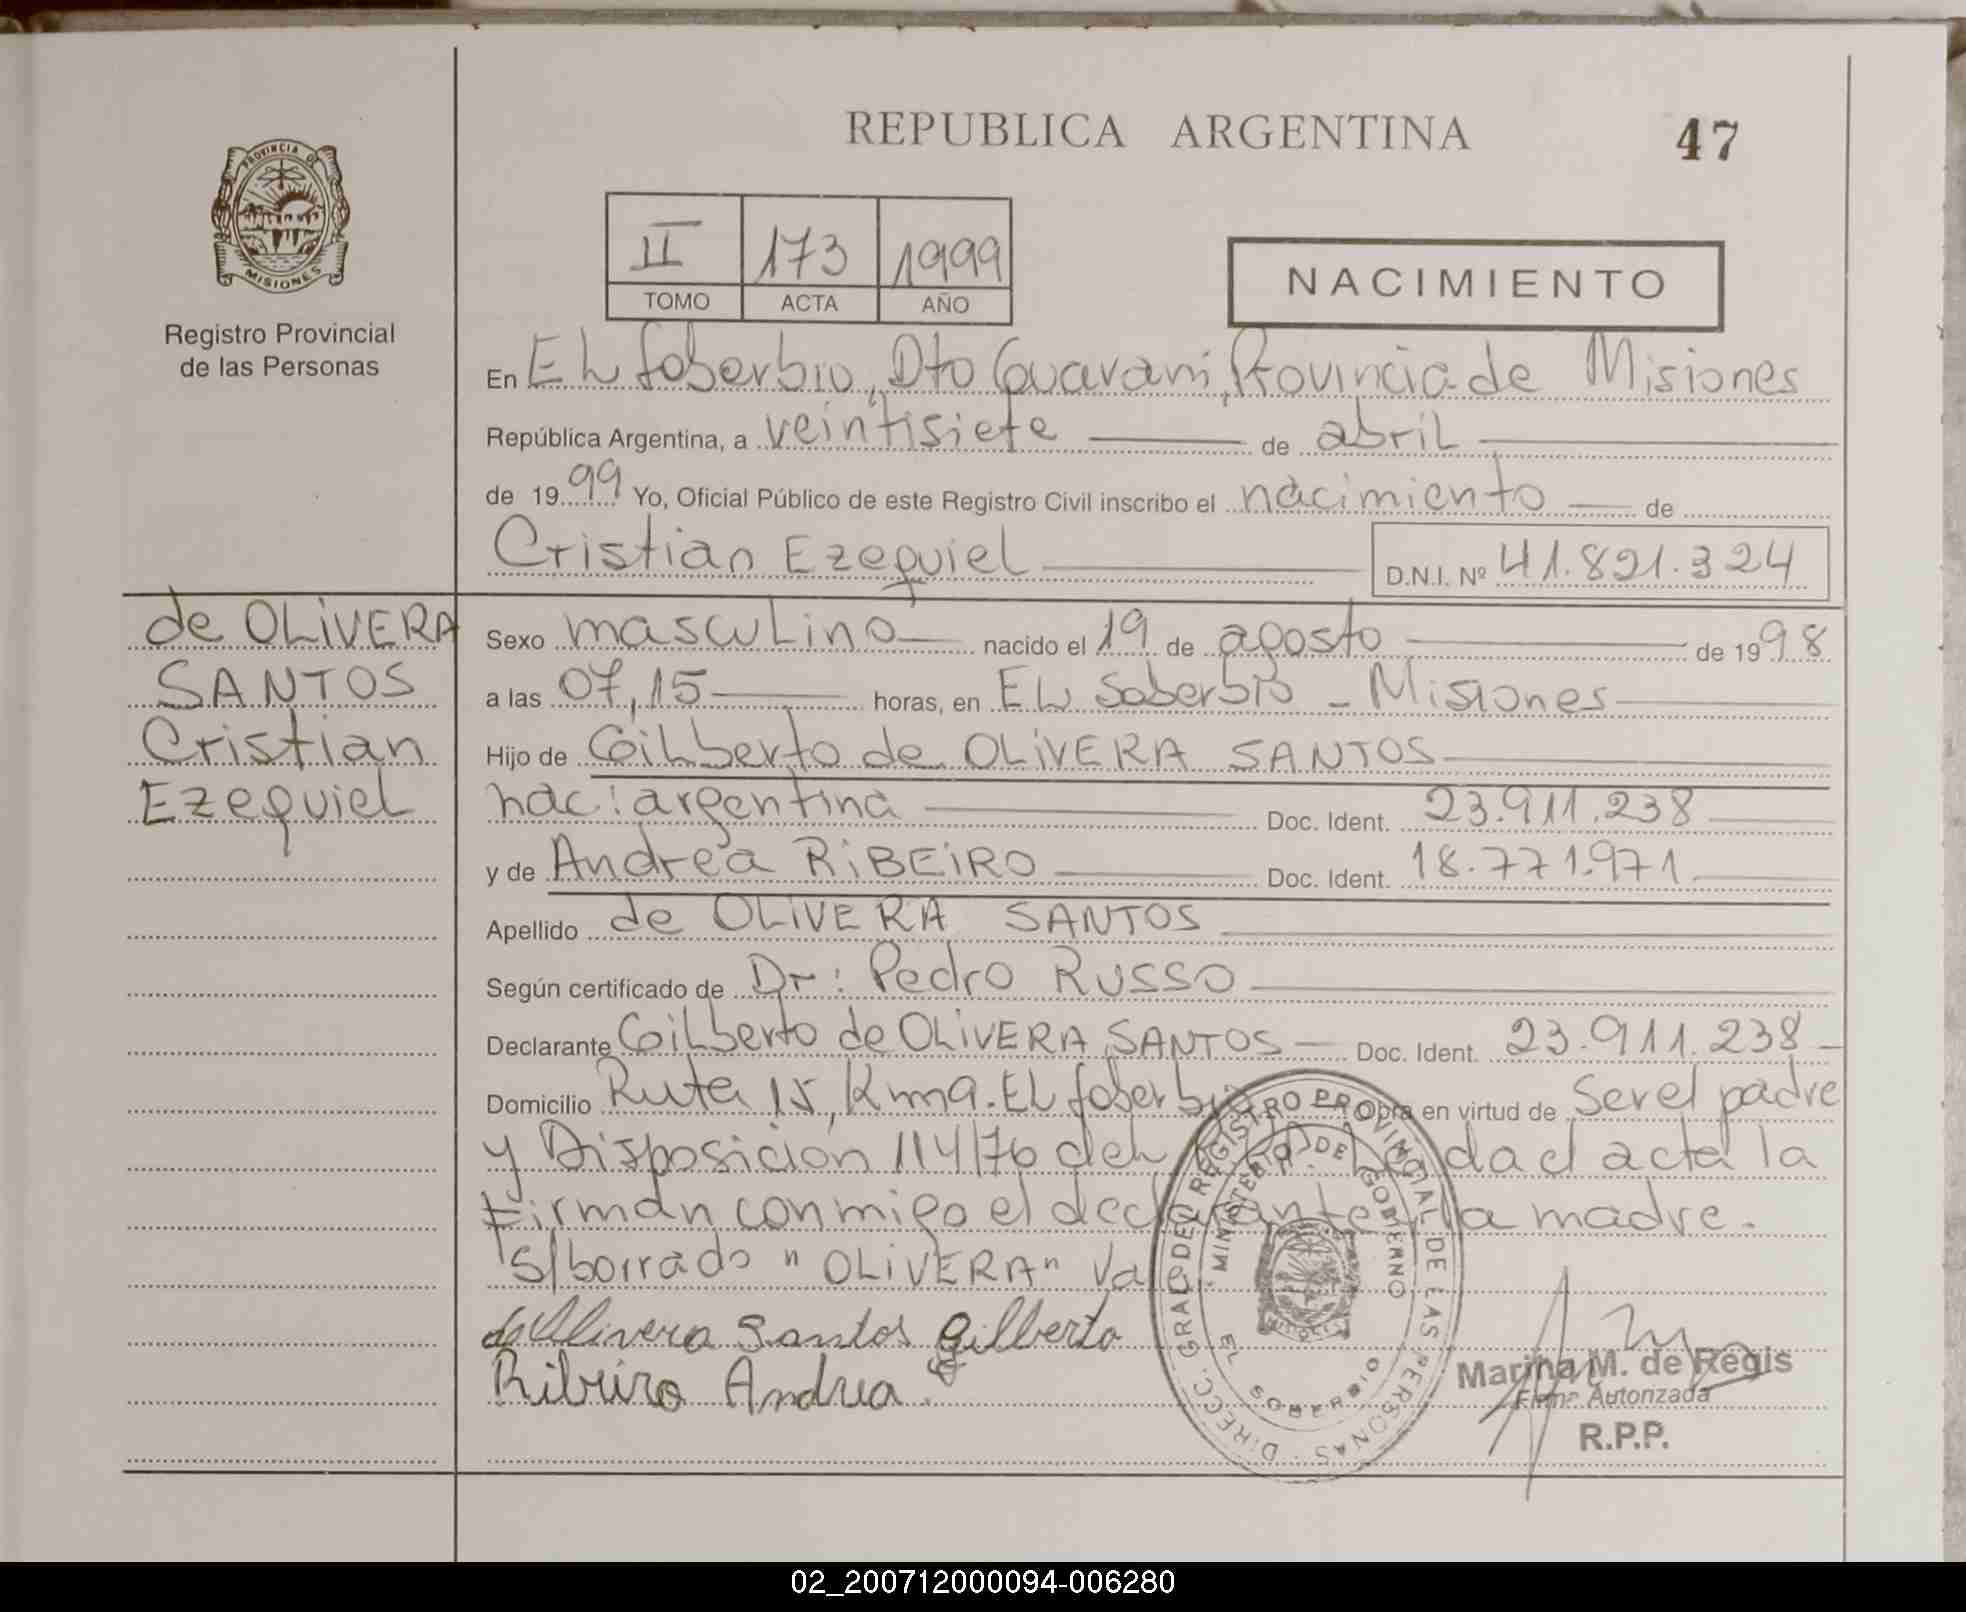 REPUBLICA ARGENTINA
47
PROVINCIA DE
MISIONES
Registro Provincial
de las Personas
II 173 1999
TOMO ACTA AÑO
NACIMIENTO
En EL Soberbio, Dto Guarani, Provincia de Misiones
República Argentina, a veintisiete de abril
de 1999 Yo, Oficial Público de este Registro Civil inscribo el nacimiento de
Cristian Ezequiel D.N.I. Nº 41.821.324
de OLIVERA
SANTOS
Cristian
Ezequiel
Sexo masculino nacido el 19 de agosto de 1998
a las 07,15 horas, en EL Soberbio - Misiones
Hijo de Gilberto de OLIVERA SANTOS
nac: argentina Doc. Ident. 23.911.238
y de Andrea RIBEIRO Doc. Ident. 18.771.971
Apellido de OLIVERA SANTOS
Según certificado de Dr: Pedro RUSSO
Declarante Gilberto de OLIVERA SANTOS Doc. Ident. 23.911.238
Domicilio Ruta 15, Km 9. EL Soberbio Obra en virtud de ser el padre
y Disposición 114/76 del Leida el acta la
firman conmigo el declarante y la madre.
S/borrado "OLIVERA" Vale
de Olivera Santos Gilberto
Ribeiro Andrea
DIRECC. GRAL DEL REGISTRO PROVINCIAL DE LAS PERSONAS
MINISTERIO DE GOBIERNO
EL SOBERBIO
Marina M. de Regis
Firma Autorizada
R.P.P.
02_200712000094-006280